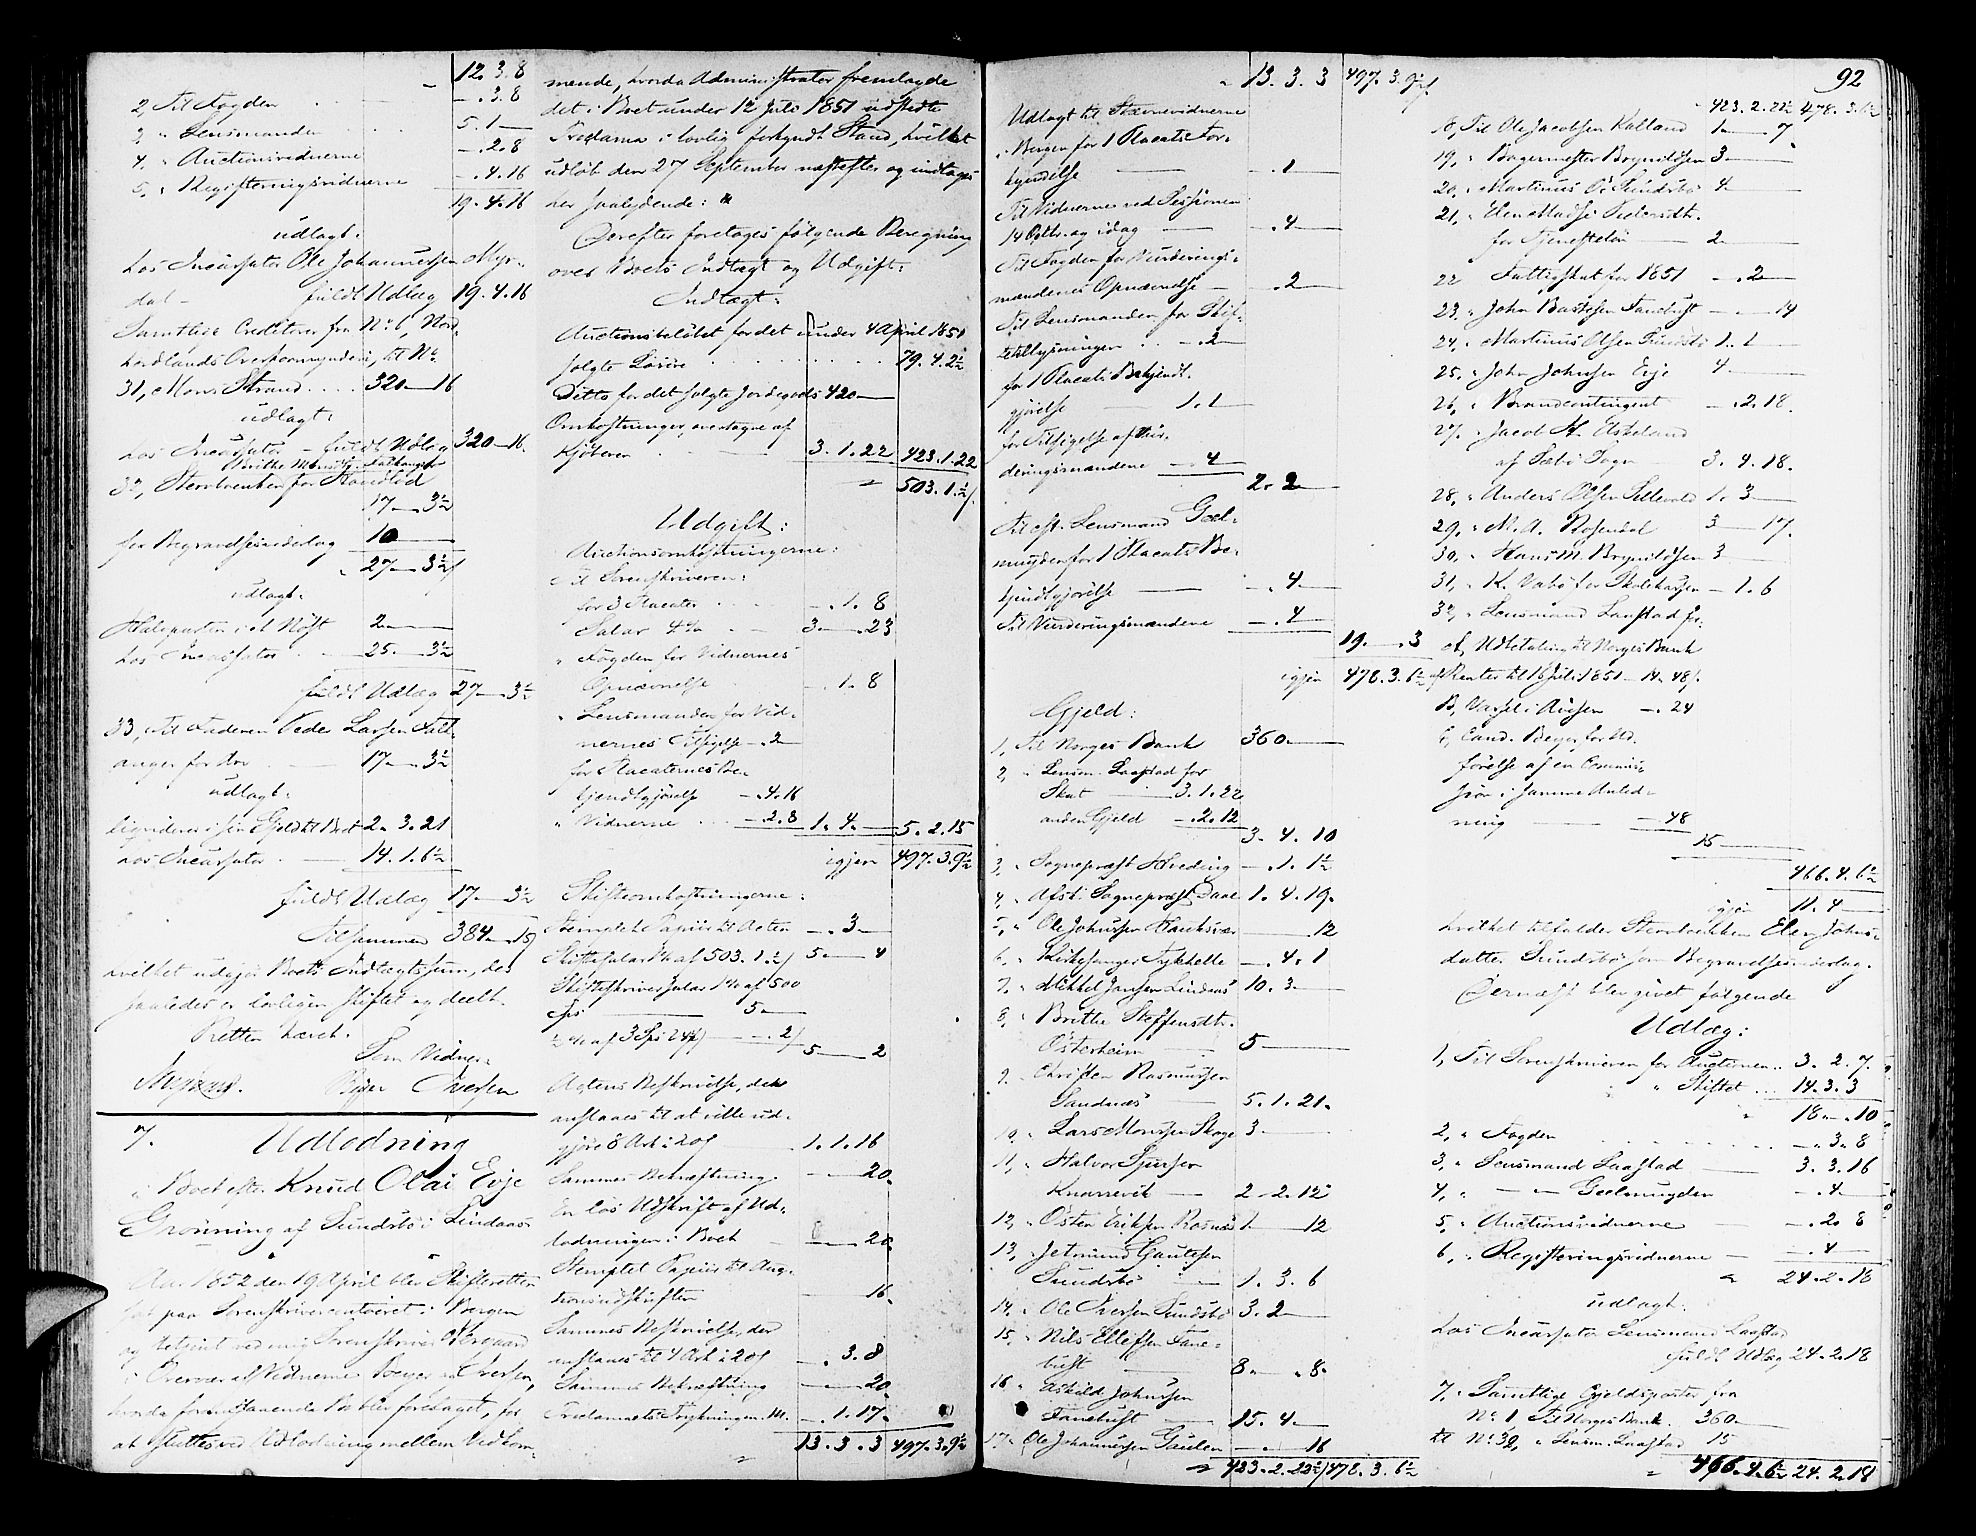 12. 3. 8
2, Til Fogden - . 3. 8
3 " Lensmanden 5. 1 —
4. " Auctionsvidnerne — . 2. 8
5, " Registeringsvidnerne — . 4. 16
19. 4. 16
udlagt:
hos Incassator Ole Johannessen Myr-
dal — fuldt Udlæg 19. 4. 16
Samtlige Creditorer fra No 6, Nord-
hordlands Overformynderi, til No
31, Mons Strand .... 320 — 16
udlagt:
hos Incassator — fuldt Udlæg 320 — 16.
32, Stervboenken
17 — 3½
for Begravelsesvederlag 10 —
27 — 3½
udlagt:
Halvparten i et Nøst 2 —
hos Incassator 25. — 3½
fuldt Udlæg 27 — 3½
33, Til Faderen Peder Larsen Fald-
anger for Arv 17 — 3½
udlagt:
liqvideres i sin Gjeld til Boet 2. 3. 21
hos Incassator 14. 1. 6½
fuldt Udlæg 17 — 3½
Tilsammen 384 — 15
hvilket udgjør Boets Indtægtssum, der
saaledes er lovligen skiftet og deelt.
Retten hævet.
Som Vidner:
Beyer Iversen
7. Udlodning
i Boet efter Knud Olai Evje
Grønning af Sundsbø i Lindaas
Aar 1852 den 19 April blev Skifteretten
sat paa Sorenskrivercontoiret i Bergen
og betjent ved mig Sorenskriver
i Overvær af Vidnerne Beyer og Iversen,
hvorda foranstaaende Bo blev foretaget, for
at sluttes ved Udlodning mellem Vedkom-
mende, hvorda Administrator fremlagde
det i Boet under 12 Juli 1851 udstedte
Proclama i lovlig forkyndt Stand, hvilket
udløb den 27 September næstefter og indtages
her saalydende:
Derefter foretages følgende Beregning
over Boets Indtægt og Udgift:
Indtægt:
Auctionsbeløbet for det under 4 April 1851
solgte Løsøre 79. 4. 2½
Ditto for det solgte Jordegods 420 —
Omkostninger, overtagne af
Kjøberen 3. 1. 22 423. 1. 22
503. 1. ½
Udgift:
Auctionsomkostningerne:
Til Sorenskriveren:
for 3 Placater — . 1. 8
Salar 4% 3 — . 23
" Fogden for Vidnernes
Opnævnelse — . 1. 8
" Lensmanden for Vid-
nernes Tilsigelse — . 2 —
for Placaternes Be-
kjendtgjørelse — . 4. 16
" Vidnerne — . 2. 8 1. 4. — 5. 2. 15
igjen 497. 3. 9½
Skifteomkostningerne:
Stemplet Papiir til Acten — . 3 —
Skiftesalær 1% af 503. 1. ½ 5 — 4
Skifteskriversalær 1% af 500
Spd 5 —
½% af 3 Spd — . 2 5 — 2
Actens Beskrivelse, der
ansaaes til at ville ud-
gjøre 8 Ark à 20 ß 1. 1. 16
Sammes Bekræftning — 20.
En løs Udskrift af Ud-
lodningen i Boet — 20.
Stemplet Papiir til Auc-
tionsudskriften — 16.
Sammes Beskrivelse, der
ansaaes til 4 Ark à 20 ß — . 3. 8
Sammes Bekræftning — 20
Proclamaets Trykningen m. — . 1. 17.
13. 3. 3 497. 3. 9½
92
13. 3. 3 497. 3. 9½
Udlagt til Stævnevidnerne
i Bergen for 1 Placats For-
kyndelse — . 1
Til Vidnerne ved Sessionen
14 Octbr. og idag — . 4 —
Til Fogden for Vurderings-
mændenes Opnævnelse — . 2 —
Til Lensmanden for Skif-
tetillysningen — . 2 —
for 1 Placats Bekjendt-
gjørelse 1. 1
for Tilsigelse af Vur-
deringsmændene — . 4
2. 2
Til cst. Lensmand Geel-
muyden for 1 Placats Be-
kjendtgjørelse — . 4 —
Til Vurderingsmændene — . 4
19. — . 3
igjen 478. 3. 6½
Gjeld:
1, Til Norges Bank 360 —
2, " Lensm. Laastad for
Skat 3. 1. 22
anden Gjeld — . 2. 12
3. 4. 10
3, " Sognepræst Hvoding — . 1. 1½
4, " Afsk. Sognepræst Daae 1. 4. 19.
5, " Ole Johnsen — 12
6. " Kirkesanger — . 4. 1
7. " Mikkel Jansen Lindaas 10. 3 —
8, " Brithe Steffensdtr.
Osterheim 5 —
9. " Christen Rasmussen
Sandnæs 5. 1. 21.
10, " Lars Monssen Skage 3 —
11, " Halvor Sjursen
Knarrevik 2. 2. 12
12, " Østen Eriksen Rosnæs 1 — 12
13, " Jetmund Gautesen
Sundsbø 1. 3. 6
14, " Ole Iversen Sundsbø 3. 2 —
15. " Nils Ellefsen Fane-
bust 8 — . 8.
16 " Askild Johnsen
Fanebust 15. 4. —
17. " Ole Johannessen — . — 16
423. 2. 22½ 478. 3. 6½
423. 2. 22½ 478. 3. 6½
18, Til Ole Jacobsen Kalland 1 — 7
19, " Bagermester Brynildsen 3 —
20, " Martinus O. Sundsbø 4 —
21, "
for Tjenesteløn 2 —
22 Fattigskat for 1851 — . 2 —
23, " John Fanebust — . — 14
24, " Martinus Olsen Sundsbø 1. 1 —
25. " John Johnsen Evje 4 —
26, " Brandcontingent — . 2. 18.
27. " Jacob
af Sæbø Sogn 3. 4. 18.
28, " Anders Olsen 1. 3 —
29, " M. A. Rosendal 3 — 17.
30, " Hans M. Brynildsen 3 —
31, " K. Vabø for Skolekassen — 1. 6
32, " Lensmand Laastad for
A, Udbetaling til Norges Bank
Renter til 15 Juli 1851 — 14. 48.
B, Varsel i Avisen — . 24
C, Cand. Beyer, for Ud-
førelse af en Commis-
sion i samme Anled-
ning — 48
15 —
466. 4. 6½
igjen 11. 4 —
hvilket tilfalder Stervboenken Elen Johns-
datter Sundsbø som Begravelsesvederlag.
Dernæst blev givet følgende
Udlæg:
1, Til Sorenskriveren for Auctionen 3. 2. 7.
" Skiftet 14. 3. 3
18 — . 10
2, " Fogden — . 3. 8
3, " Lensmand Laastad 3. 3. 16
4, " — " — Geelmuyden — . 4 —
5, " Auctionsvidnerne — . 2. 8
6, " Registeringsvidnerne — . 4 —
24. 2. 18
udlagt:
hos Incassator Lensmand Laastad
fuldt Udlæg 24. 2. 18
7, " Samtlige Gjeldsposter fra
No 1 Til Norges Bank. 360 —
til No 32, " Lensm. Laastad 15
466. 4. 6½ 24. 2. 18